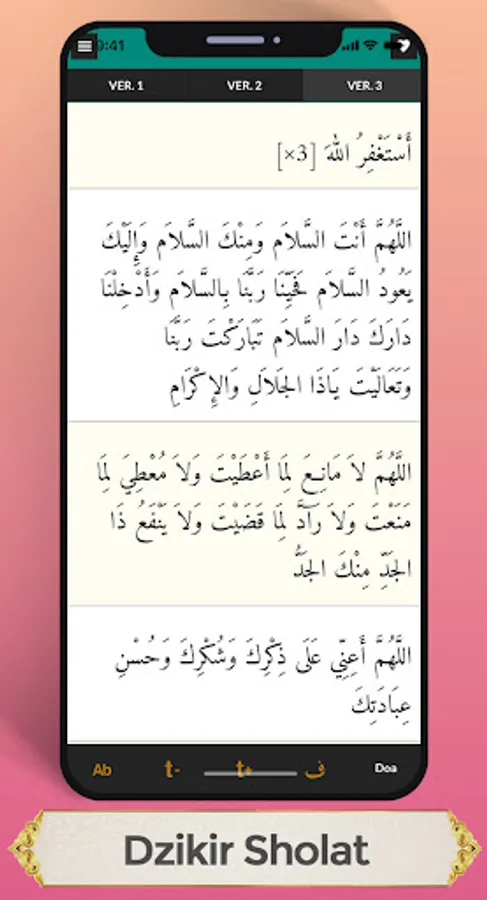 9:41
VER. 1 VER. 2 VER. 3
أَسْتَغْفِرُ اللهَ [3×]
اللَّهُمَّ أَنْتَ السَّلاَم وَمِنْكَ السَّلاَم وَإِلَيْكَ
يَعُودُ السَّلاَم فَحَيِّنَا رَبَّنَا بِالسَّلاَم وَأَدْخِلْنَا
دَارَكَ دَارَ السَّلاَم تَبَارَكْتَ رَبَّنَا
وَتَعَالَيْتَ يَاذَا الجَلَالِ وَالإِكْرَامِ
اللَّهُمَّ لاَ مَانِعَ لِمَا أَعْطَيْتَ وَلاَ مُعْطِيَ لِمَا
مَنَعْتَ وَلاَ رَآدَّ لِمَا قَضَيْتَ وَلاَ يَنْفَعُ ذَا
الجَدِّ مِنْكَ الجَدُّ
اللَّهُمَّ أَعِنِّي عَلَى ذِكْرِكَ وَشُكْرِكَ وَحُسْنِ
عِبَادَتِكَ
Ab t- t+ ف Doa
Dzikir Sholat